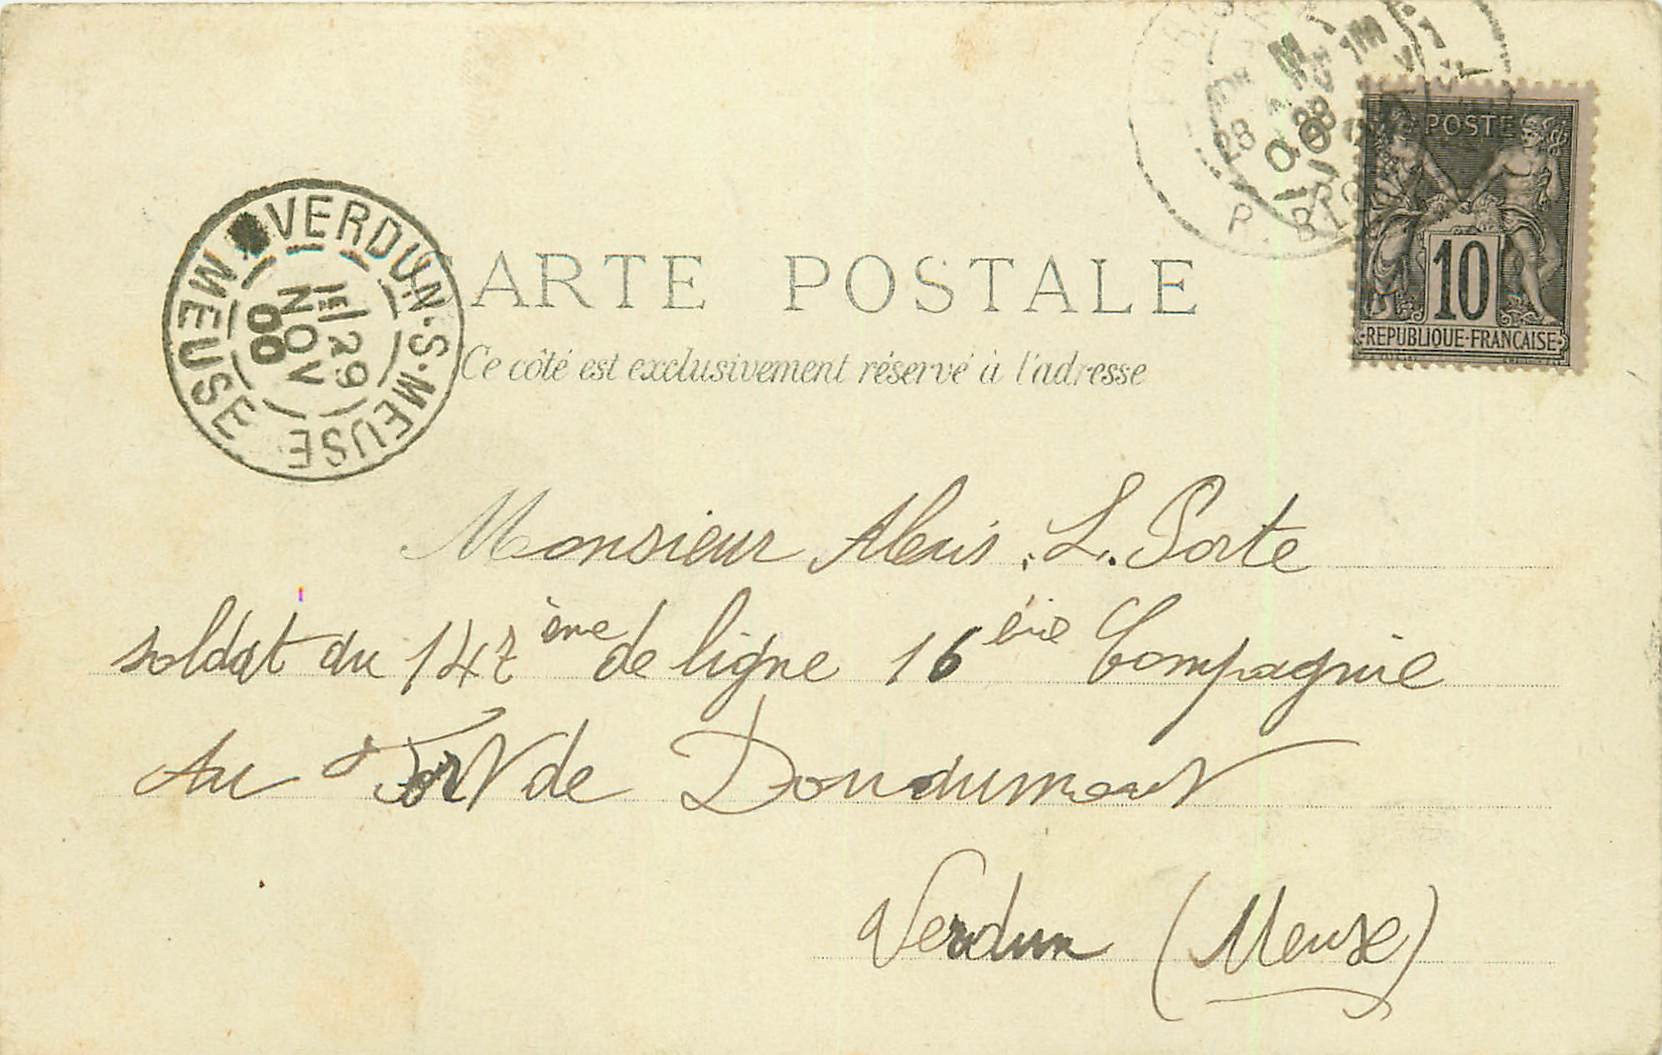 28 NOV 00
R. BLO
POSTE
10
REPUBLIQUE-FRANÇAISE
VERDUN-S-MEUSE
MEUSE
1E/29
NOV
00
CARTE POSTALE
Ce côté est exclusivement réservé à l'adresse
Monsieur Alexis L. Porte
soldat du 147ème de ligne 16ème Compagnie
Au Fort de Doudumont
Verdun (Meuse)